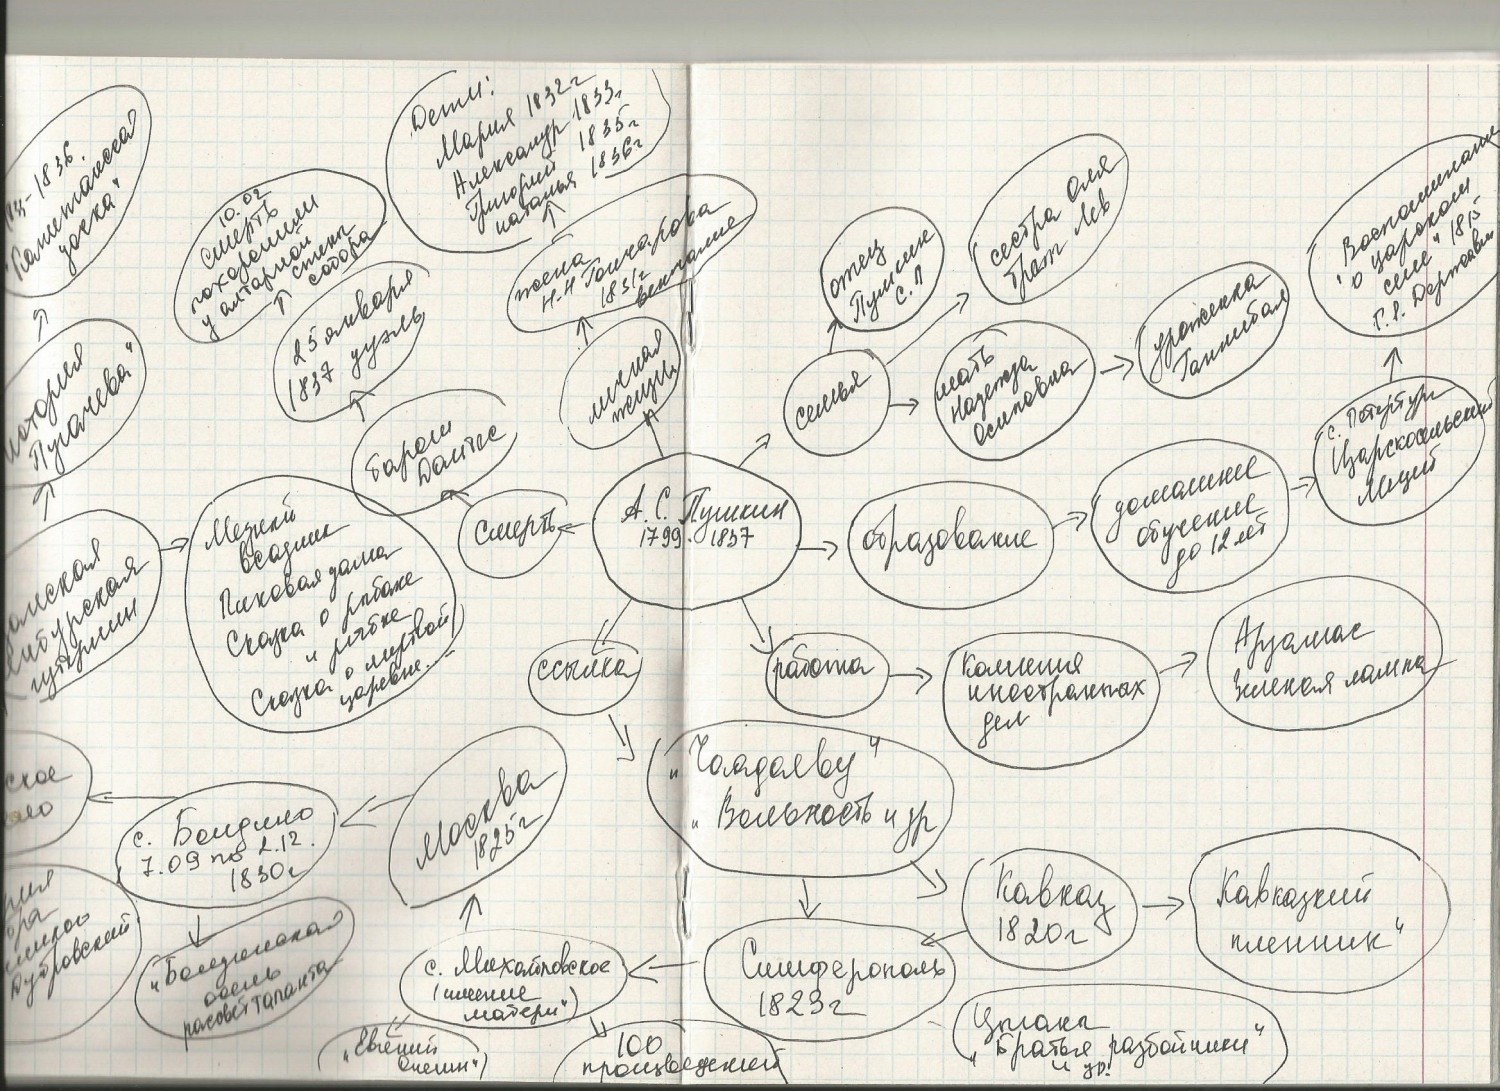 Дети:
Мария 1832г
Александр 1833г
Григорий 1835г
Наталья 1836г
-1836.
"Капитанская
дочка"
10.02
смерть
похоронили
у алтарной
стены
собора
жена
Н.Н Гончарова
1831г
венчание
отец
Пушкин
С.Л
сестра Оля
брат Лев
"Воспоминание
о царском
селе" 1815
Г.Р. Державин
25 января
1837 дуэль
личная
жизнь
семья
мать
Надежда
Осиповна
уроженка
Ганнибал
история
Пугачева"
барон
Дантес
с. Петербург
Царскосельский
Лицей
Медный
всадник
Пиковая дама
Сказка о рыбаке
и рыбке
Сказка о мертвой
царевне...
смерть
А.С. Пушкин
1799. 1837
образование
домашнее
обучение
до 12 лет
губернии
ссылка
работа
Коллегия
иностранных
дел
Арзамас
Зеленая лампа
"Чаадаеву"
"Вольность и др
Москва
1825г
с. Болдино
7.09 по 2.12.
1830г
ское
Дубровский
"Болдинская
осень
расовет таланта
с. Михайловское
(имение
матери")
Симферополь
1823г
Кавказ
1820г
Кавказский
пленник"
"Евгений
Онегин")
100
произведений
Цыганы
"Братья разбойники"
и др.